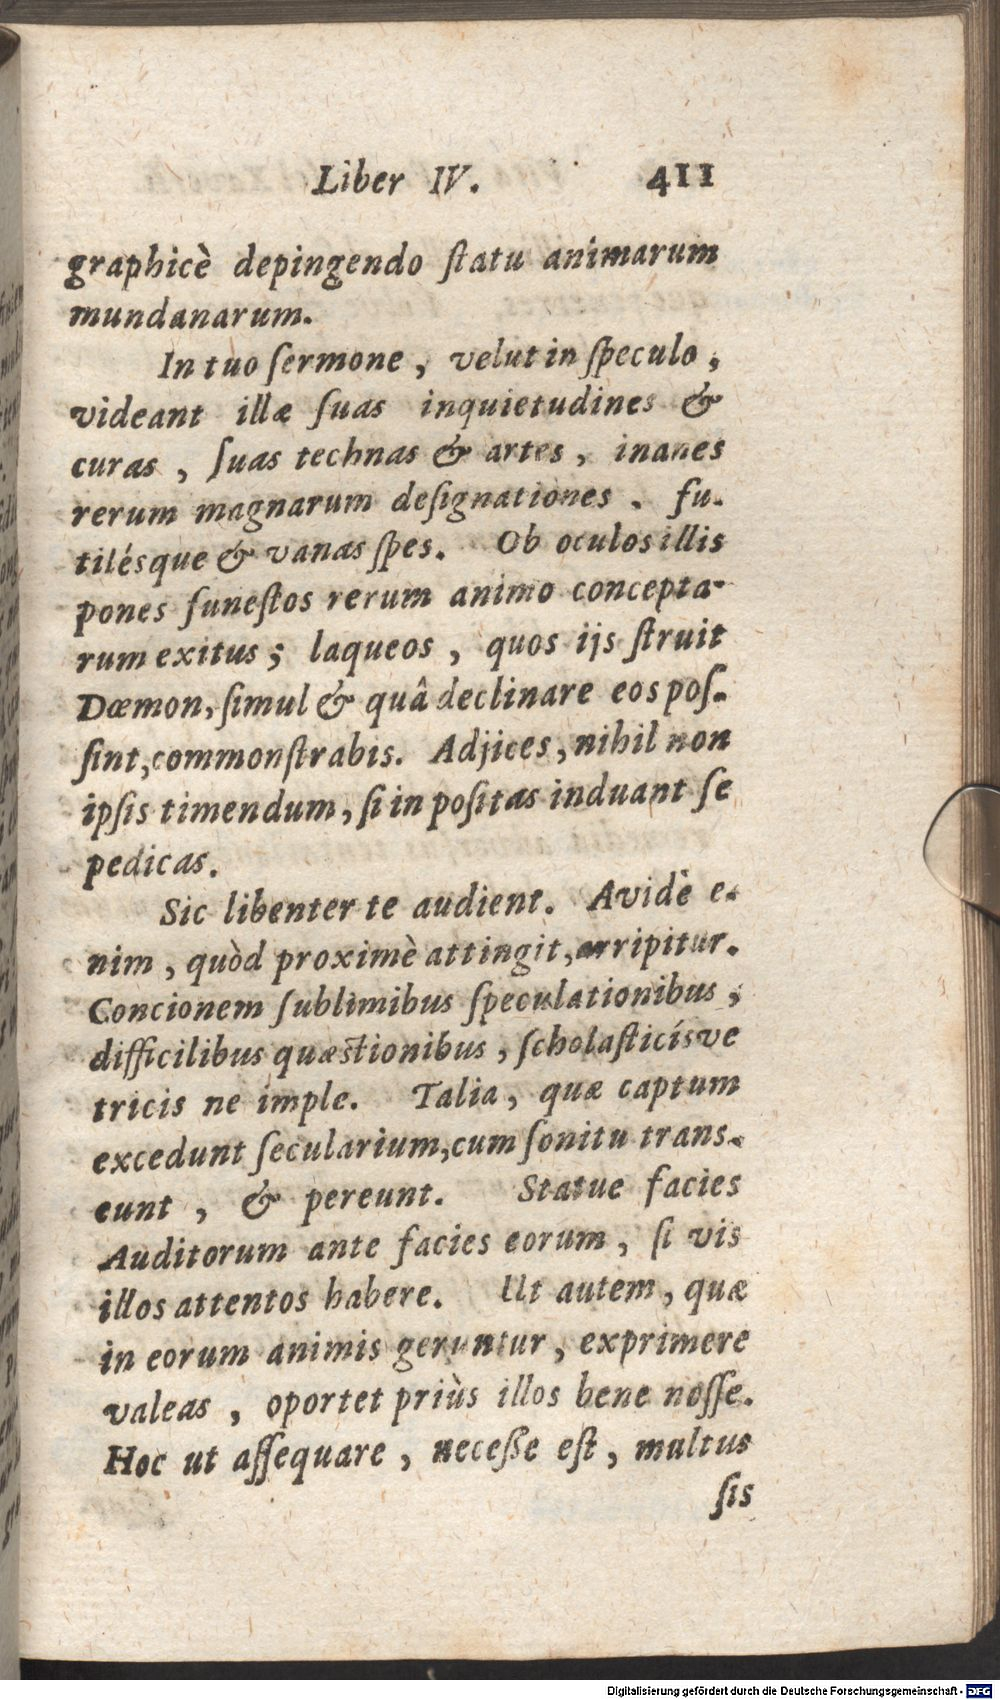 Liber IV. 411
graphicè depingendo ſtatu animarum
mundanarum.
In tuo ſermone, velut in ſpeculo,
videant illæ ſuas inquietudines &
curas, ſuas technas & artes, inanes
rerum magnarum deſignationes. fu-
tilésque & vanas ſpes. Ob oculos illis
pones funeſtos rerum animo concepta-
rum exitus; laqueos, quos ijs ſtruit
Dæmon, ſimul & quâ declinare eos poſ-
ſint, commonſtrabis. Adjices, nihil non
ipſis timendum, ſi in poſitas induant ſe
pedicas.
Sic libenter te audient. Avidè e-
nim, quòd proximè attingit, arripitur.
Concionem ſublimibus ſpeculationibus,
difficilibus quæstionibus, ſcholaſticísve
tricis ne imple. Talia, quæ captum
excedunt ſecularium, cum ſonitu trans-
eunt, & pereunt. Statue facies
Auditorum ante facies eorum, ſi vis
illos attentos habere. Ut autem, quæ
in eorum animis geruntur, exprimere
valeas, oportet priùs illos bene noſſe.
Hoc ut aſſequare, neceße eſt, multus
ſis
Digitalisierung gefördert durch die Deutsche Forschungsgemeinschaft - DFG